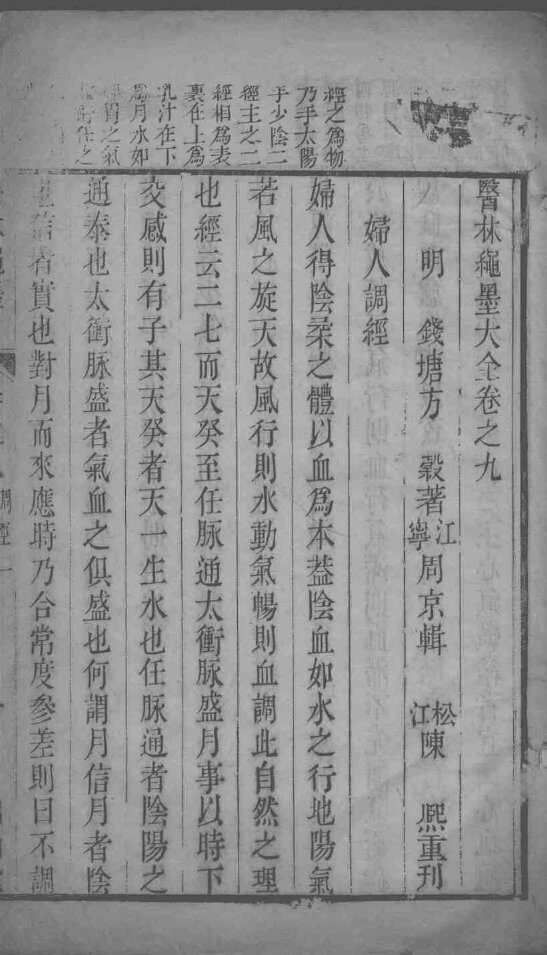 經之爲物
乃手太陽
手少陰二
經主之二
經相爲表
裏在上爲
乳汁在下
爲月水如
胃之氣
之
醫林繩墨大全卷之九
明 錢塘方 穀著 江寧周京輯 松江陳 熈重刊
婦人調經
婦人得陰柔之體以血爲本葢陰血如水之行地陽氣
若風之旋天故風行則水動氣暢則血調此自然之理
也經云二七而天癸至任脉通太衝脉盛月事以時下
交感則有子其天癸者天一生水也任脉通者陰陽之
通泰也太衝脉盛者氣血之俱盛也何謂月信月者陰
也信者實也對月而來應時乃合常度參差則曰不調
調經 一